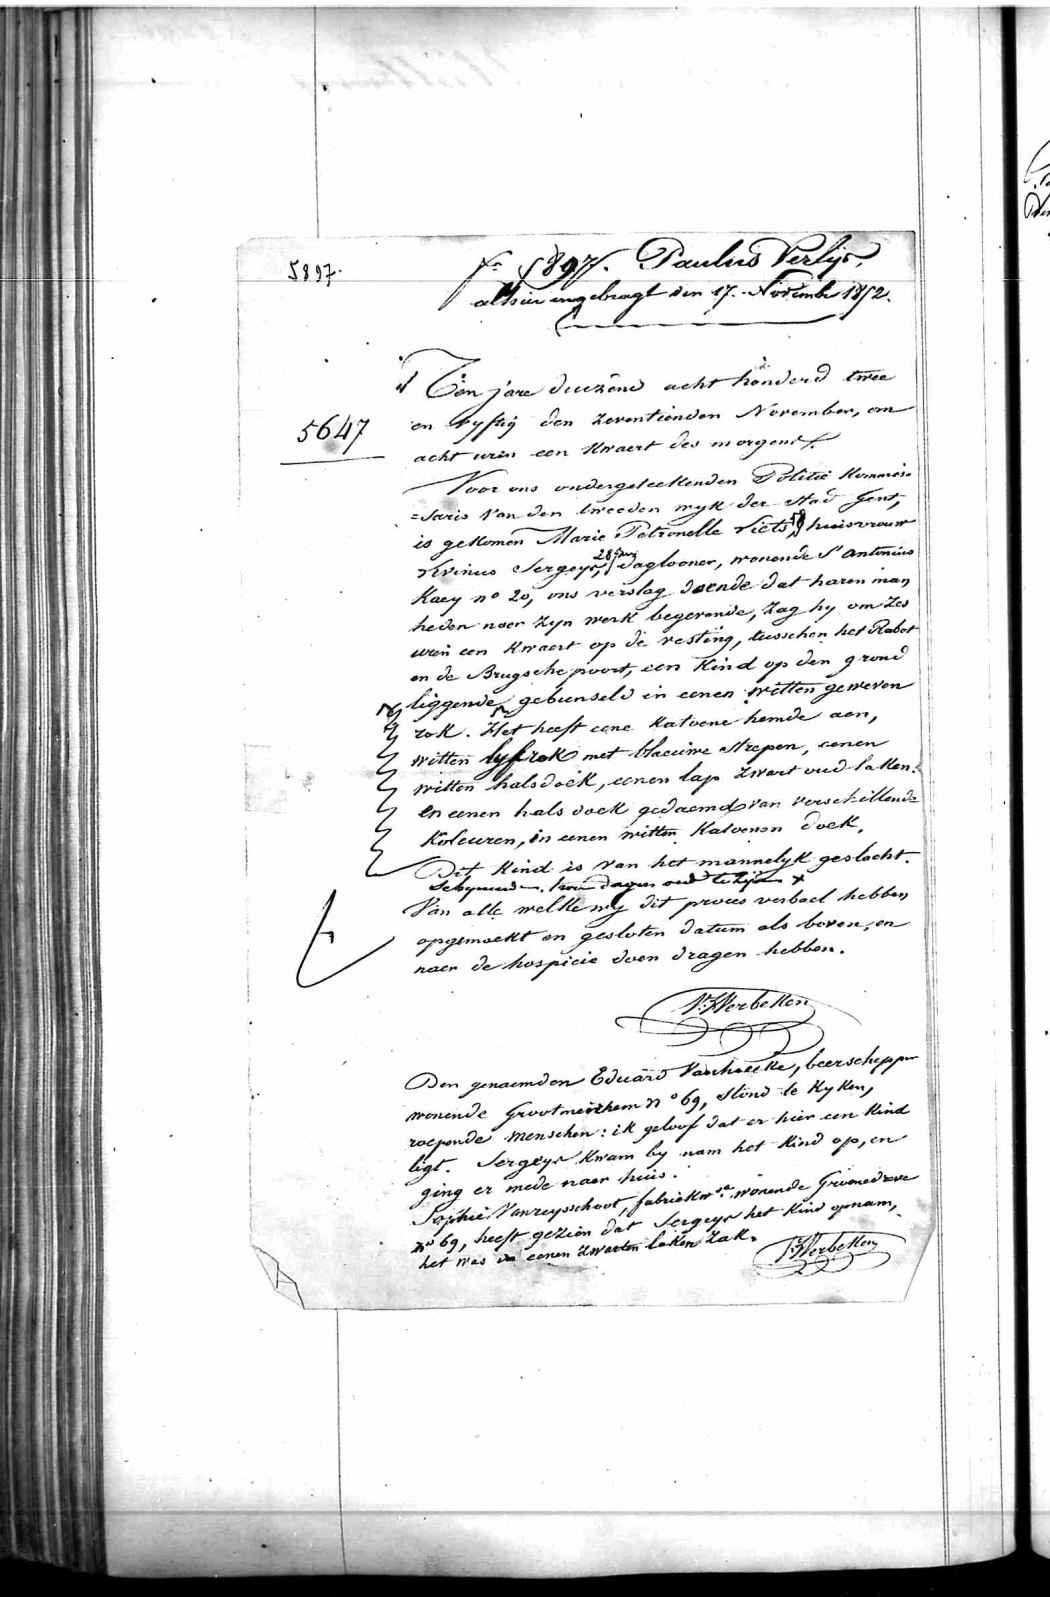 5897.
5897. Paulus Verlys,
alhier ingebragt den 17. November 1852.
5647
Ten jare duizend acht honderd twee
en vyftig den zeventienden November, om
acht uren een kwaert des morgens.
Voor ons ondergeteekenden Politie Kommis=
=saris van den tweeden wyk der stad Gent,
is gekomen Marie Petronelle Viets, huisvrouw
Livinus Sergeys, 28 jaer, daglooner, wonende St Antonius
Kaey no 20, ons verslag doende dat haren man
heden naer zyn werk begevende, zag hy om zes
uren een kwaert op de vesting, tusschen het Rabot
en de Brugschepoort, een kind op den grond
liggende, gebunseld in eenen witten geweven
rok. Het heeft eene katoene hemde aen,
witten lyfrok met blaeuwe strepen, eenen
witten halsdoek, eenen lap zwart oud laken.
en eenen halsdoek gedaemd van verschillende
koleuren, in eenen witten katoenen doek.
Dit kind is van het mannelyk geslacht.
dagen oud te zyn
Van alle welke wy dit proces verbael hebben
opgemaekt en gesloten datum als boven, en
naer de hospicie doen dragen hebben.
V. Werbekken
Den genaemden Eduard Vanhoecke, beerschepper
wonende Grootmeirhem no 69, stond te kyken,
roepende menschen: ik geloof dat er hier een kind
ligt. Sergeys kwam by nam het kind op, en
ging er mede naer huis.
Sophie Vanreysschoot, fabriekwse wonende Groenedreve
no 69, heeft gezien dat Sergeys het kind opnam,
het was in eenen zwarten laken zak.
V. Werbekken